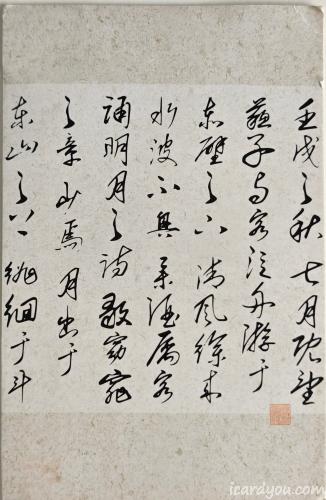 壬戌之秋七月既望
蘇子与客泛舟游于
赤壁之下清風徐来
水波不興舉酒屬客
誦明月之詩歌窈窕
之章少焉月出于
東山之上徘徊于斗
icardyou.com